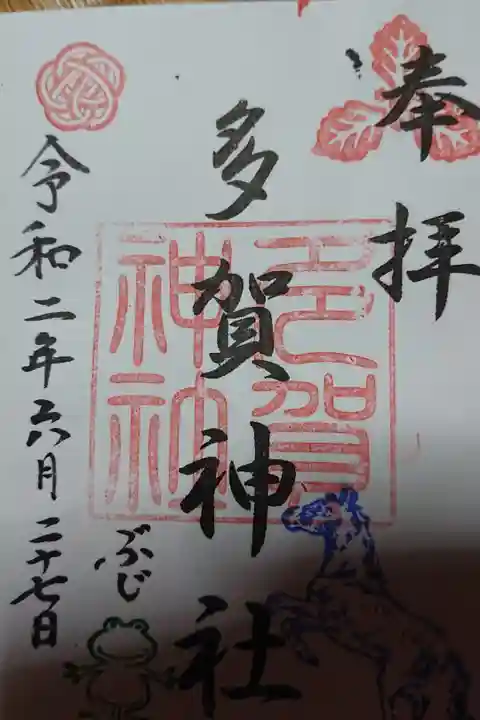 奉拝
多賀神社
多賀神社
令和二年六月二十七日
ぶじ